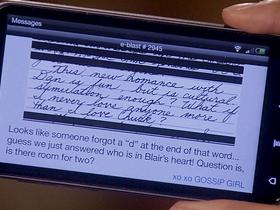 Messages
e-blast # 2945
This new romance with
Dan is fun, but is cultural
stimulation enough? What if
I never love anyone more
than I love Chuck?
Looks like someone forgot a "d" at the end of that word...
guess we just answered who is in Blair's heart! Question is,
is there room for two?
xo xo GOSSIP GIRL